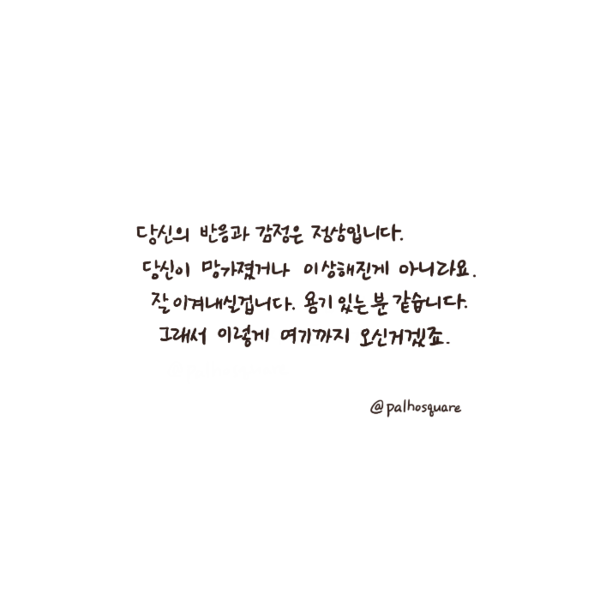 당신의 반응과 감정은 정상입니다.
당신이 망가졌거나 이상해진게 아니라요.
잘 이겨내실겁니다. 용기 있는 분 같습니다.
그래서 이렇게 여기까지 오신거겠죠.
@palhosquare